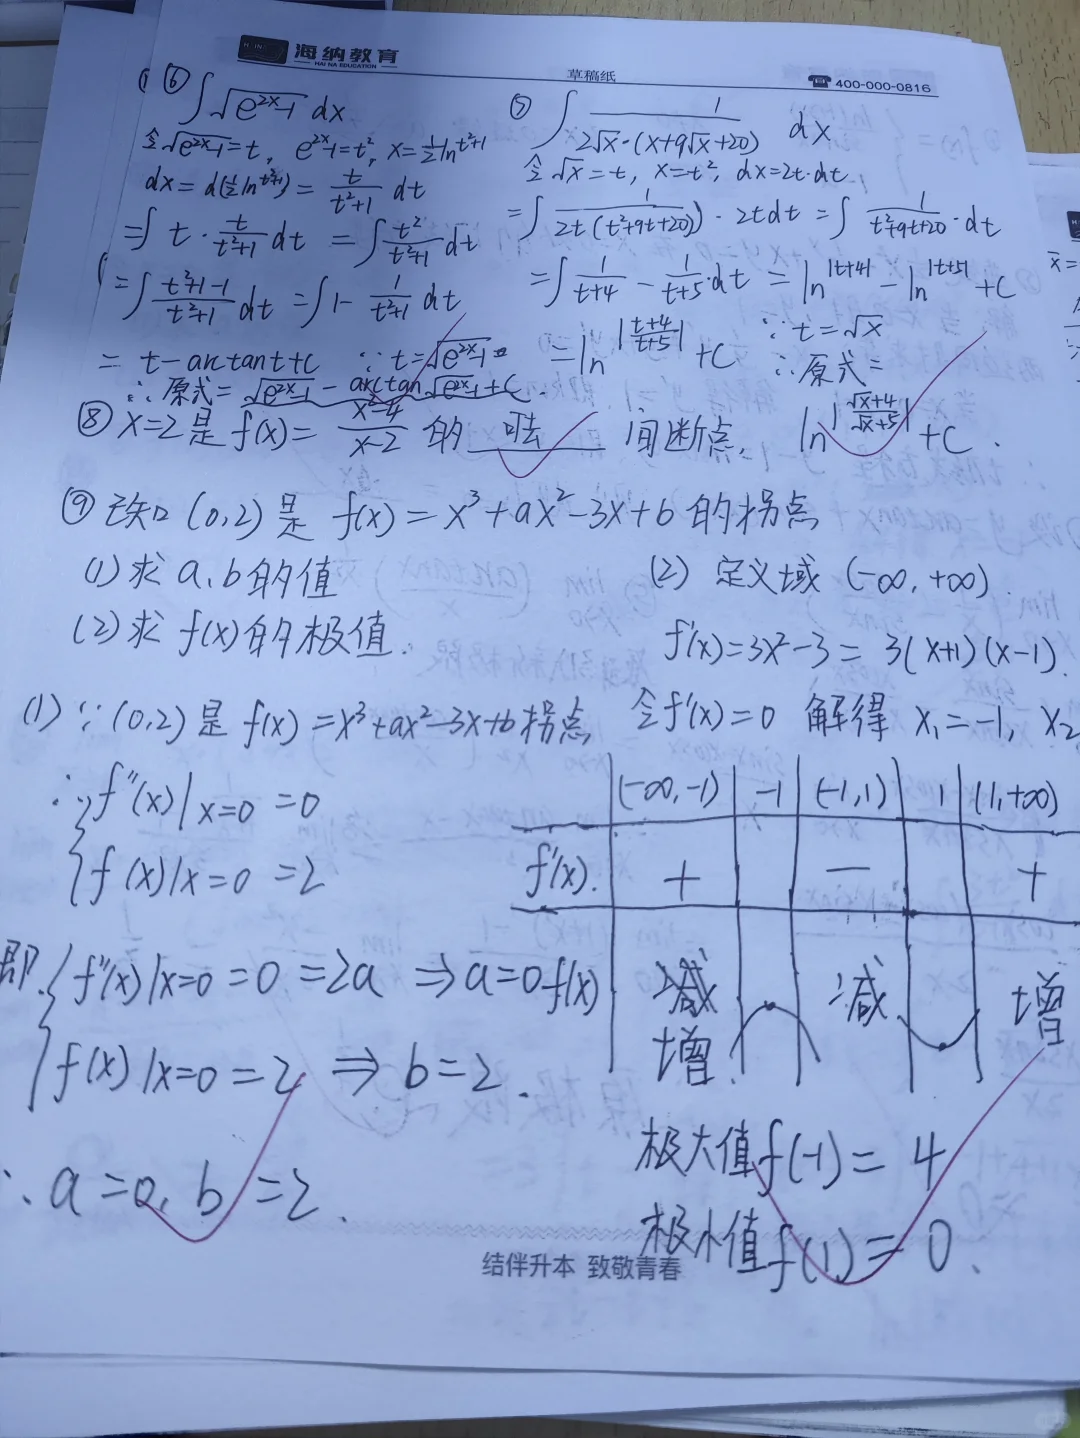 海纳教育
HAI NA EDUCATION
草稿纸
400-000-0816
⑥ ∫√(e^(2x)-1) dx
令√(e^(2x)-1)=t, e^(2x)-1=t², x=½ln^(t²+1)
dx=d(½ln^(t²+1))=t/(t²+1) dt
=∫t·t/(t²+1) dt =∫t²/(t²+1) dt
=∫(t²+1-1)/(t²+1) dt =∫1-1/(t²+1) dt
=t-arctant+C ∵t=√(e^(2x)-1)
∴原式=√(e^(2x)-1)-arctan√(e^(2x)-1)+C.
⑦ ∫1/(2√x·(x+9√x+20)) dx
令√x=t, x=t², dx=2t·dt
=∫1/(2t(t²+9t+20))·2tdt=∫1/(t²+9t+20)·dt
=∫1/(t+4)-1/(t+5)·dt=ln^|t+4|-ln^|t+5|+C
=ln^|(t+4)/(t+5)|+C ∵t=√x
∴原式=
ln^|(√x+4)/(√x+5)|+C.
⑧ x=2是f(x)=(x²-4)/(x-2)的 可去 间断点.
⑨ 已知(0,2)是f(x)=x³+ax²-3x+b的拐点
(1)求a、b的值
(2)求f(x)的极值.
(1)∵(0,2)是f(x)=x³+ax²-3x+b拐点
∴{f''(x)|x=0=0
f(x)|x=0=2
即{f''(x)|x=0=0=2a⇒a=0
f(x)|x=0=2⇒b=2.
∴a=0, b=2.
(2)定义域(-∞,+∞).
f'(x)=3x²-3=3(x+1)(x-1).
令f'(x)=0 解得x₁=-1, x₂
(-∞,-1) -1 (-1,1) 1 (1,+∞)
f'(x). + - +
f(x) 增 减 增
极大值f(-1)=4
极小值f(1)=0.
结伴升本 致敬青春